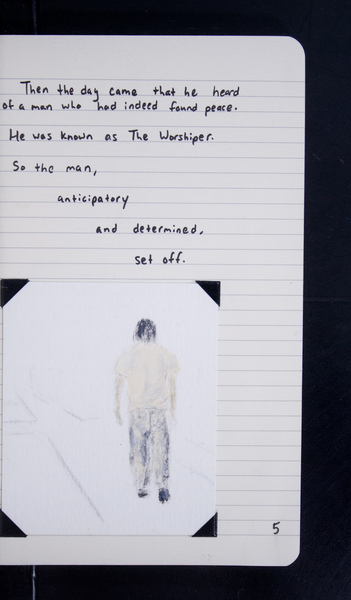 Then the day came that he heard
of a man who had indeed found peace.
He was known as The Worshiper.
So the man,
anticipatory
and determined,
set off.
5